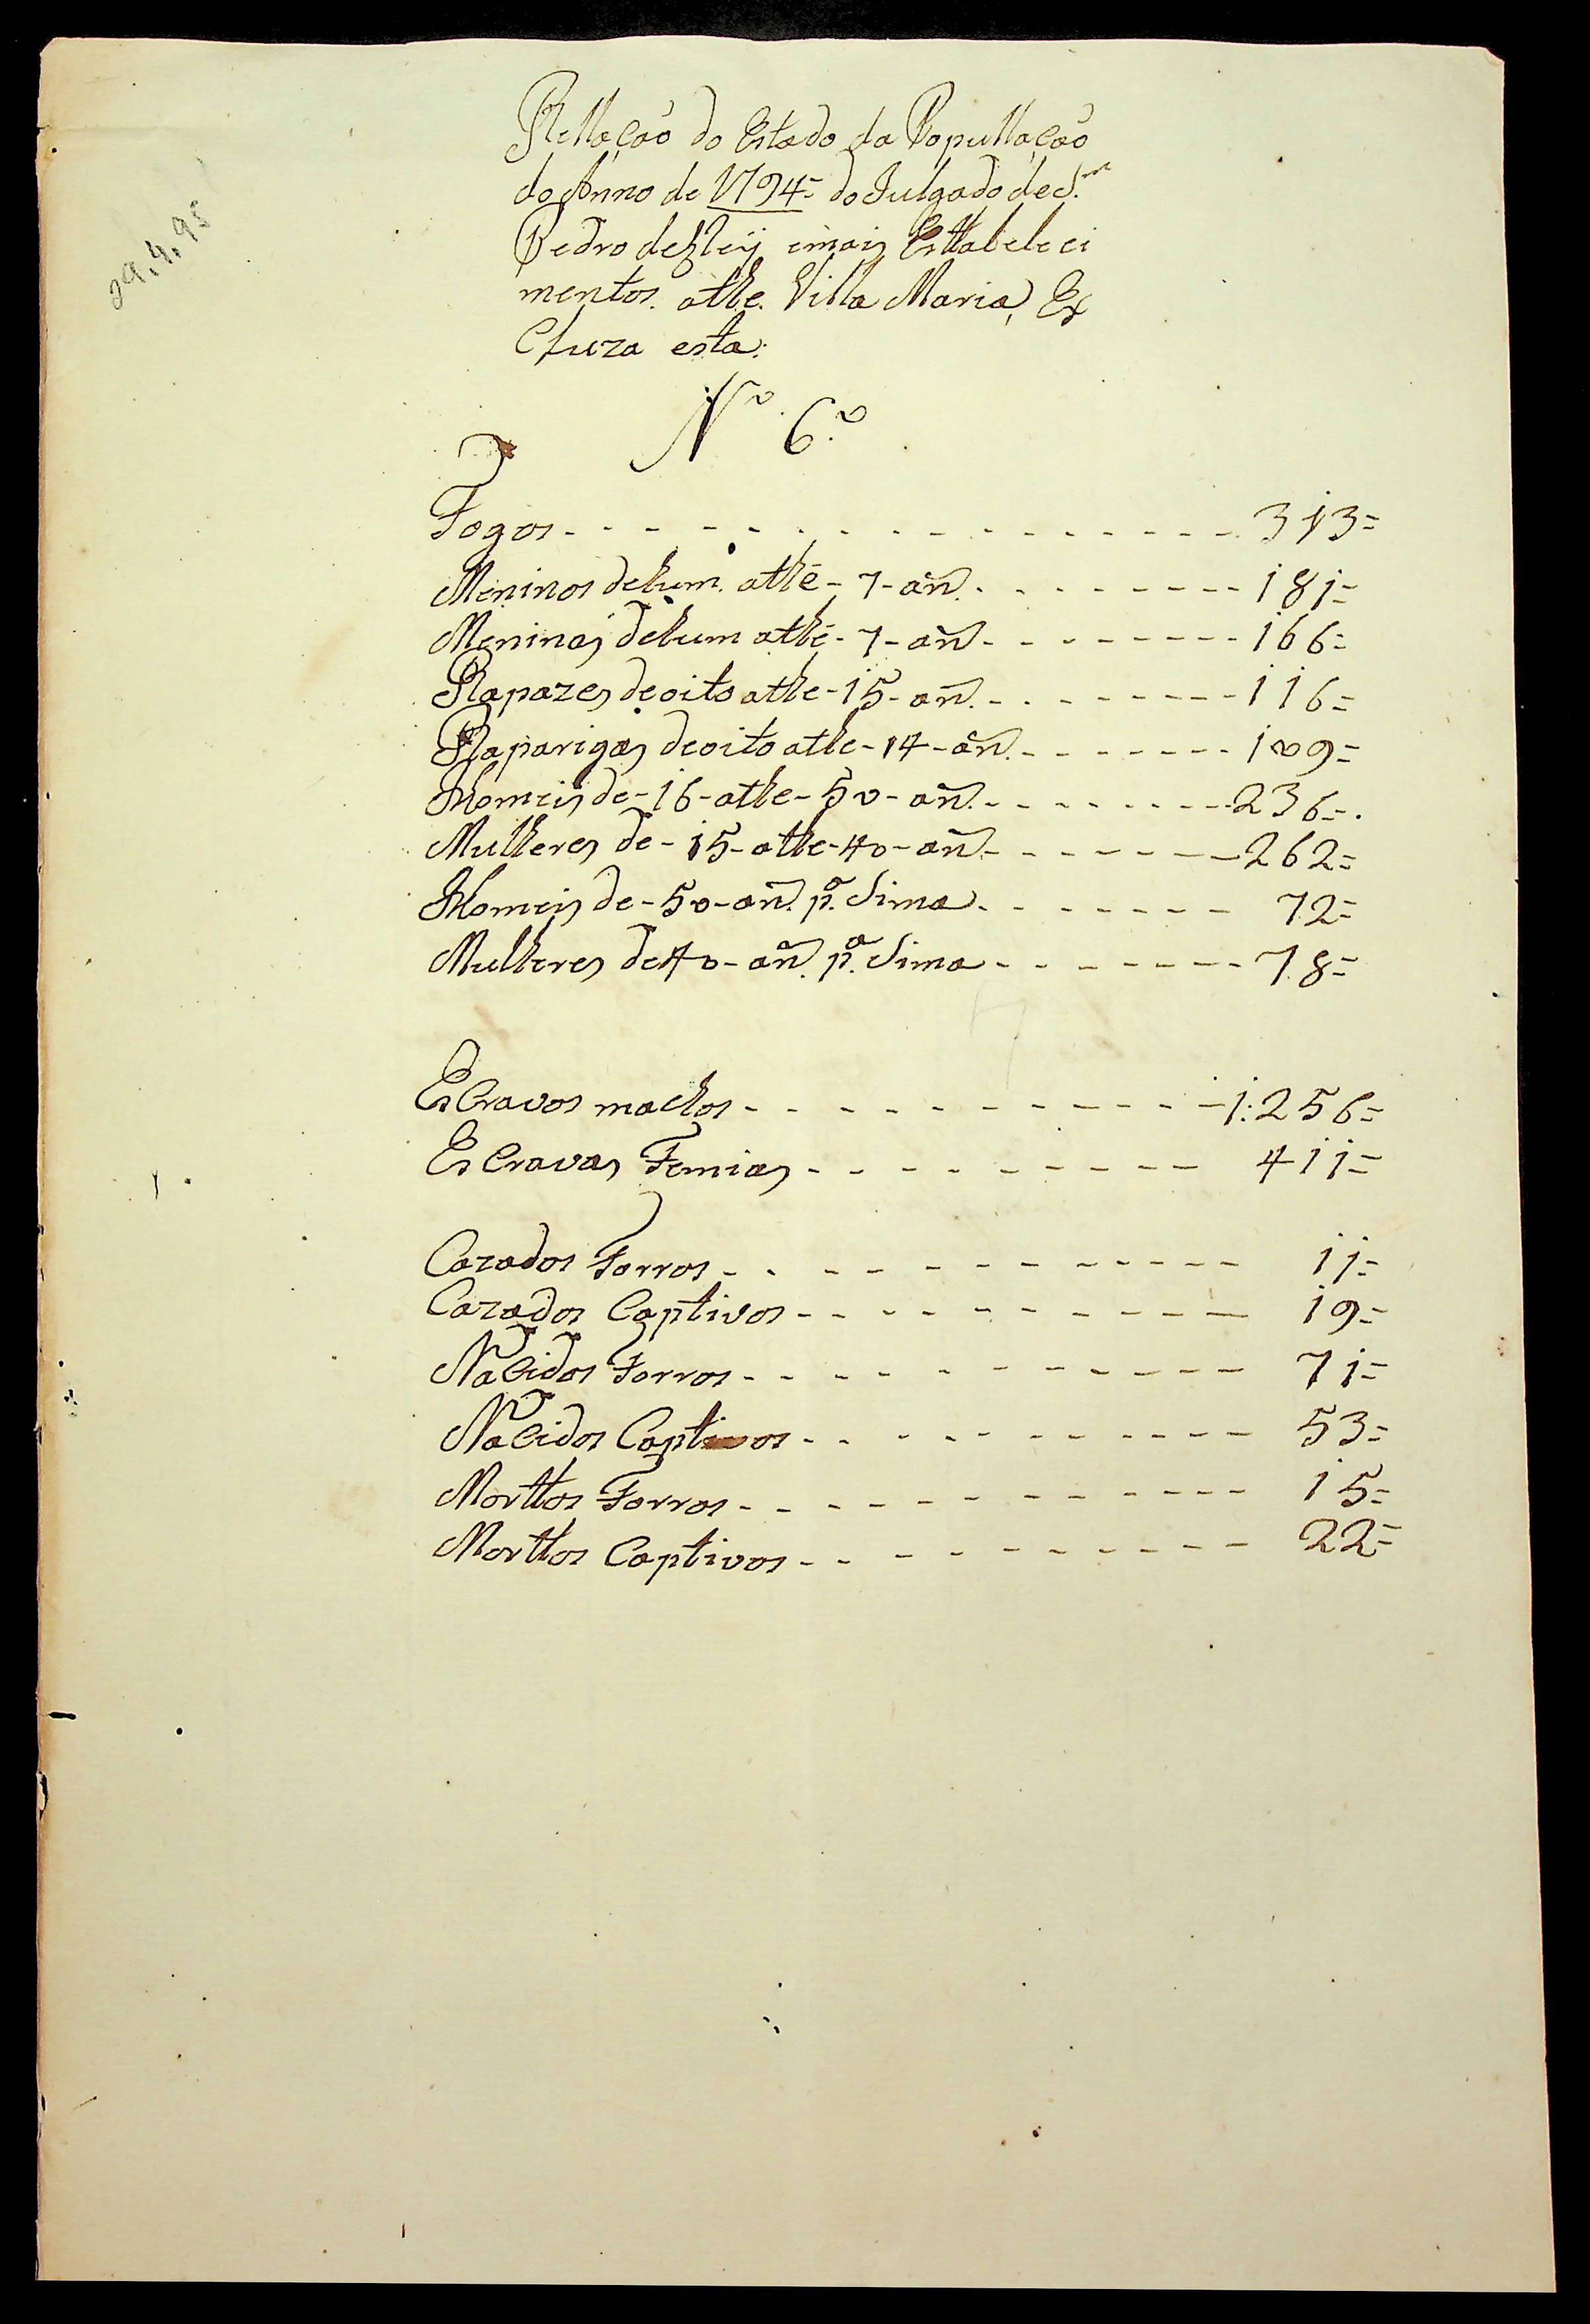 29.4.95
Rellação do Estado da Popullação
do Anno de 1794= do Julgado de S.m
Pedro del Rey e mais Esttabeleci
mentos. athe. Villa Maria, Ex
Cluza esta:
Nº 6.º
Fogos - - - - - - - - - - 313=
Meninos de hum. athé - 7 - añ. - - - - - - 181=
Meninas de hum athé - 7 - añ - - - - - - 166=
Rapazes de oito athe - 15 - añ. - - - - - - 116=
Raparigas de oito athe - 14 - añ. - - - - - - 109=
Homeis de - 16 - athe - 50 - añ. - - - - - - 236=.
Mulheres de - 15 - athe - 40 - añ. - - - - - - 262=
Homeis de - 50 - añ. p.ª Sima. - - - - - - 72=
Mulheres de 40 - añ. p.ª Sima - - - - - - 78=
Escravos machos - - - - - - - - - 1:256=
Escravas Femias - - - - - - - - - 411=
Cazados Forros - - - - - - - - - - 11=
Cazados Captivos - - - - - - - - - 19=
Nacidos Forros - - - - - - - - - - 71=
Nacidos Captivos - - - - - - - - - 53=
Morttos Forros - - - - - - - - - - 15=
Morttos Captivos - - - - - - - - - 22=